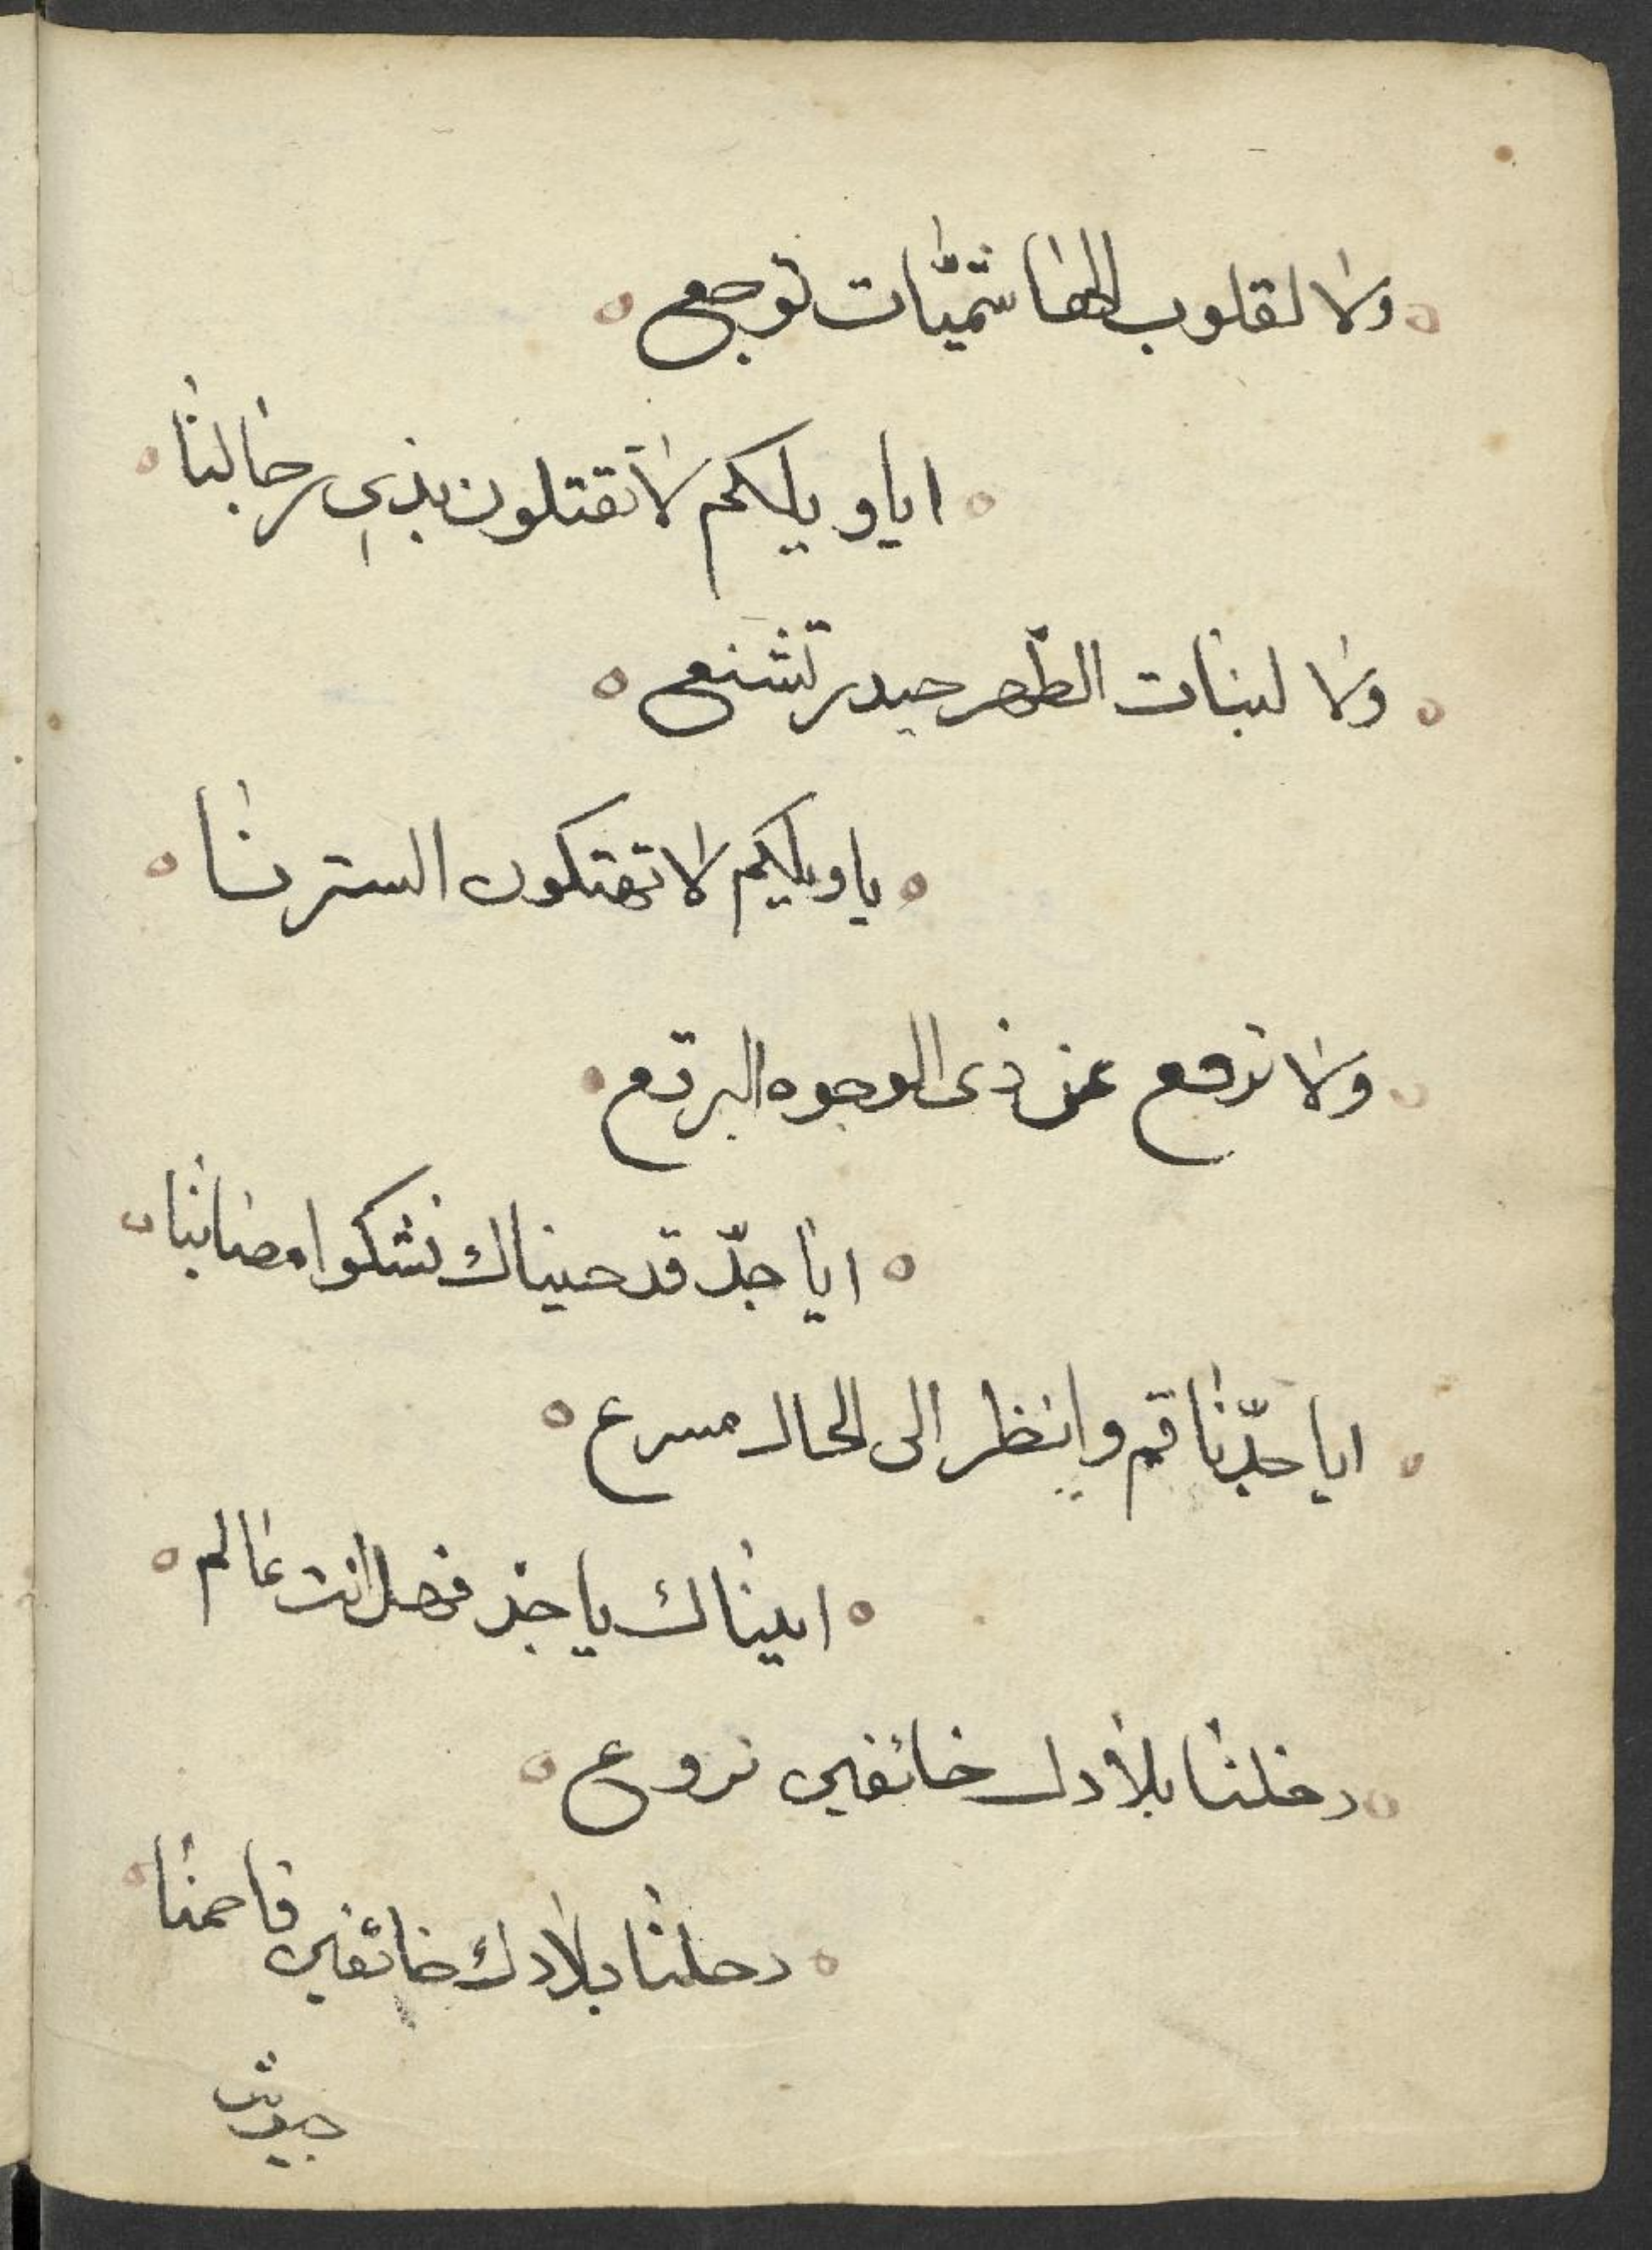 ولا لقلوب الهاشميّات توجع
ايا ويلكم لا تقتلون بذي رجالنا
ولا لبنات الطّهر حيدر تشنع
يا ويلكم لا تهتكون السترنا
ولا ترفع عن ذى الوجوه البرقع
ايا جدّ قد جيناك نشكوا مصائبنا
ايا جدّنا قم وانظر الى الحال مسرع
اتيناك يا جد فهل انت عالم
دخلنا بلادك خائفين نروع
دخلنا بلادك خائفين فاحمنا